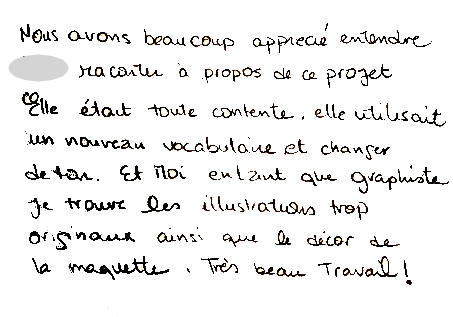 Nous avons beaucoup apprecié entendre
raconter à propos de ce projet
Elle était toute contente, elle utilisait
un nouveau vocabulaire et changer
de ton. Et Moi en tant que graphiste
je trouve les illustrations trop
originaux ainsi que le décor de
la maquette. Très beau Travail !